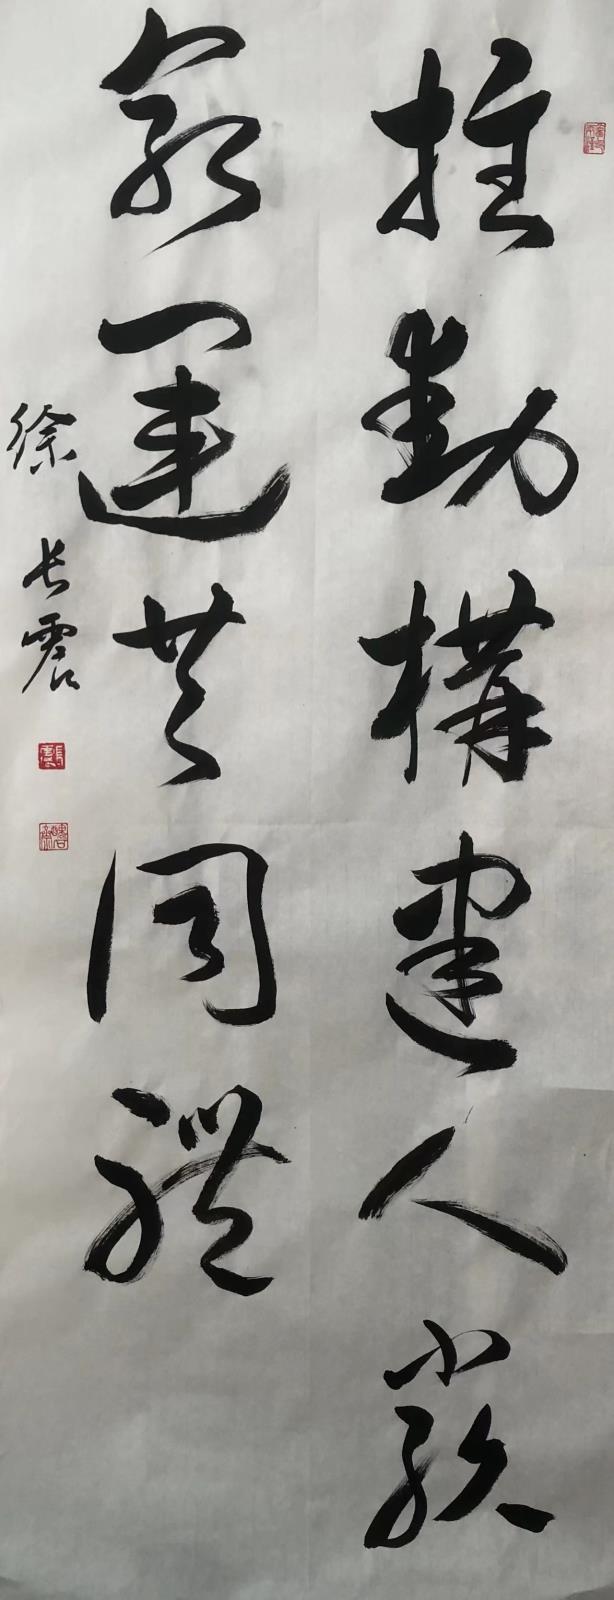 推動構建人類
命運共同體
徐长震